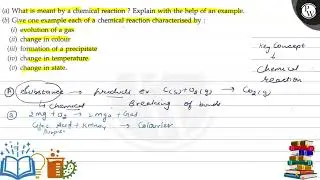 (a) What is meant by a chemical reaction ? Explain with the help of an example.
(b) Give one example each of a chemical reaction characterised by :
(i) evolution of a gas
(ii) change in colour
(iii) formation of a precipitate
(iv) change in temperature
(v) change in state.
Key Concept
↓
Chemical
Reaction
(A) Substance → products ex C(s)+O2(g) → CO2(g)
↳ chemical Breaking of bonds
2mg + O2 → 2mgo +
+ → Colour